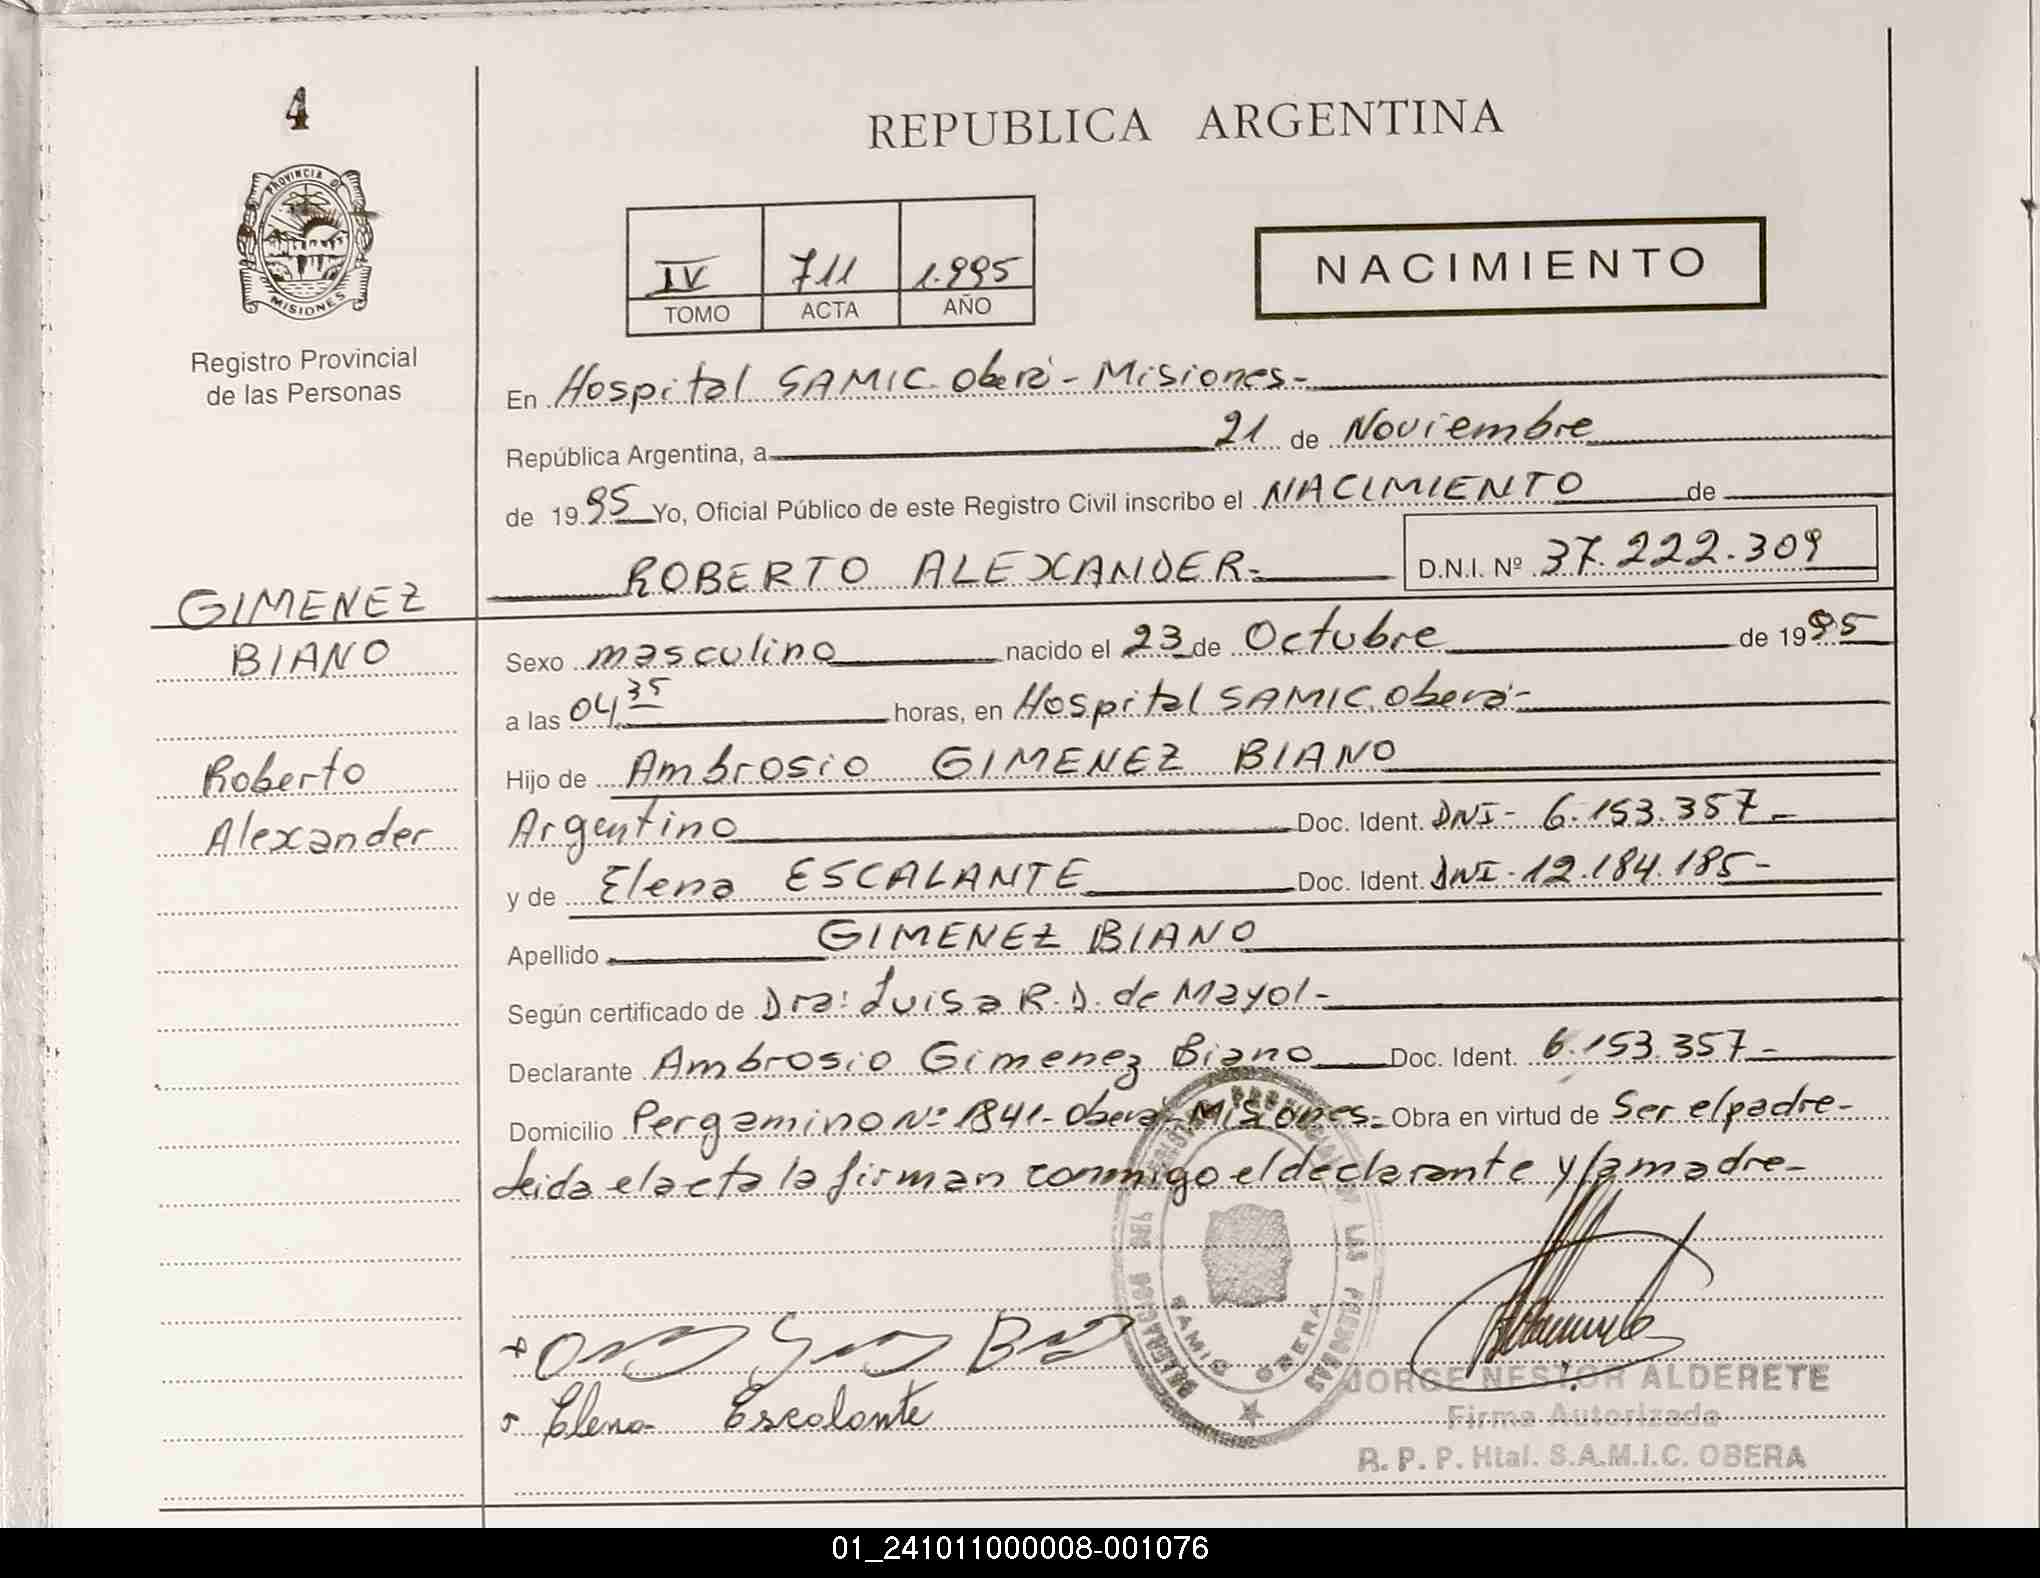 4
REPUBLICA ARGENTINA
PROVINCIA D
MISIONES
IV 711 1.995
TOMO ACTA AÑO
NACIMIENTO
Registro Provincial
de las Personas
En Hospital SAMIC. Oberá - Misiones-
República Argentina, a 21 de Noviembre
de 1995 Yo, Oficial Público de este Registro Civil inscribo el NACIMIENTO de
ROBERTO ALEXANDER- D.N.I. Nº 37.222.309
GIMENEZ
BIANO
Roberto
Alexander
Sexo masculino nacido el 23 de Octubre de 1995
a las 04,35 horas, en Hospital SAMIC. Oberá-
Hijo de Ambrosio GIMENEZ BIANO
Argentino Doc. Ident. DNI- 6.153.357-
y de Elena ESCALANTE Doc. Ident. DNI-12.184.185-
Apellido GIMENEZ BIANO
Según certificado de Dra: Luisa R. D. de Mayol-
Declarante Ambrosio Gimenez Biano Doc. Ident. 6.153.357-
Domicilio Pergamino Nº 1841- Oberá- Misiones- Obra en virtud de Ser el padre-
Leida el acta la firman conmigo el declarante y la madre-
Elena Escalante
LAS PERSONAS
SAMIC OBERA
JORGE NESTOR ALDERETE
Firma Autorizada
R. P. P. Htal. S.A.M.I.C. OBERA
01_241011000008-001076